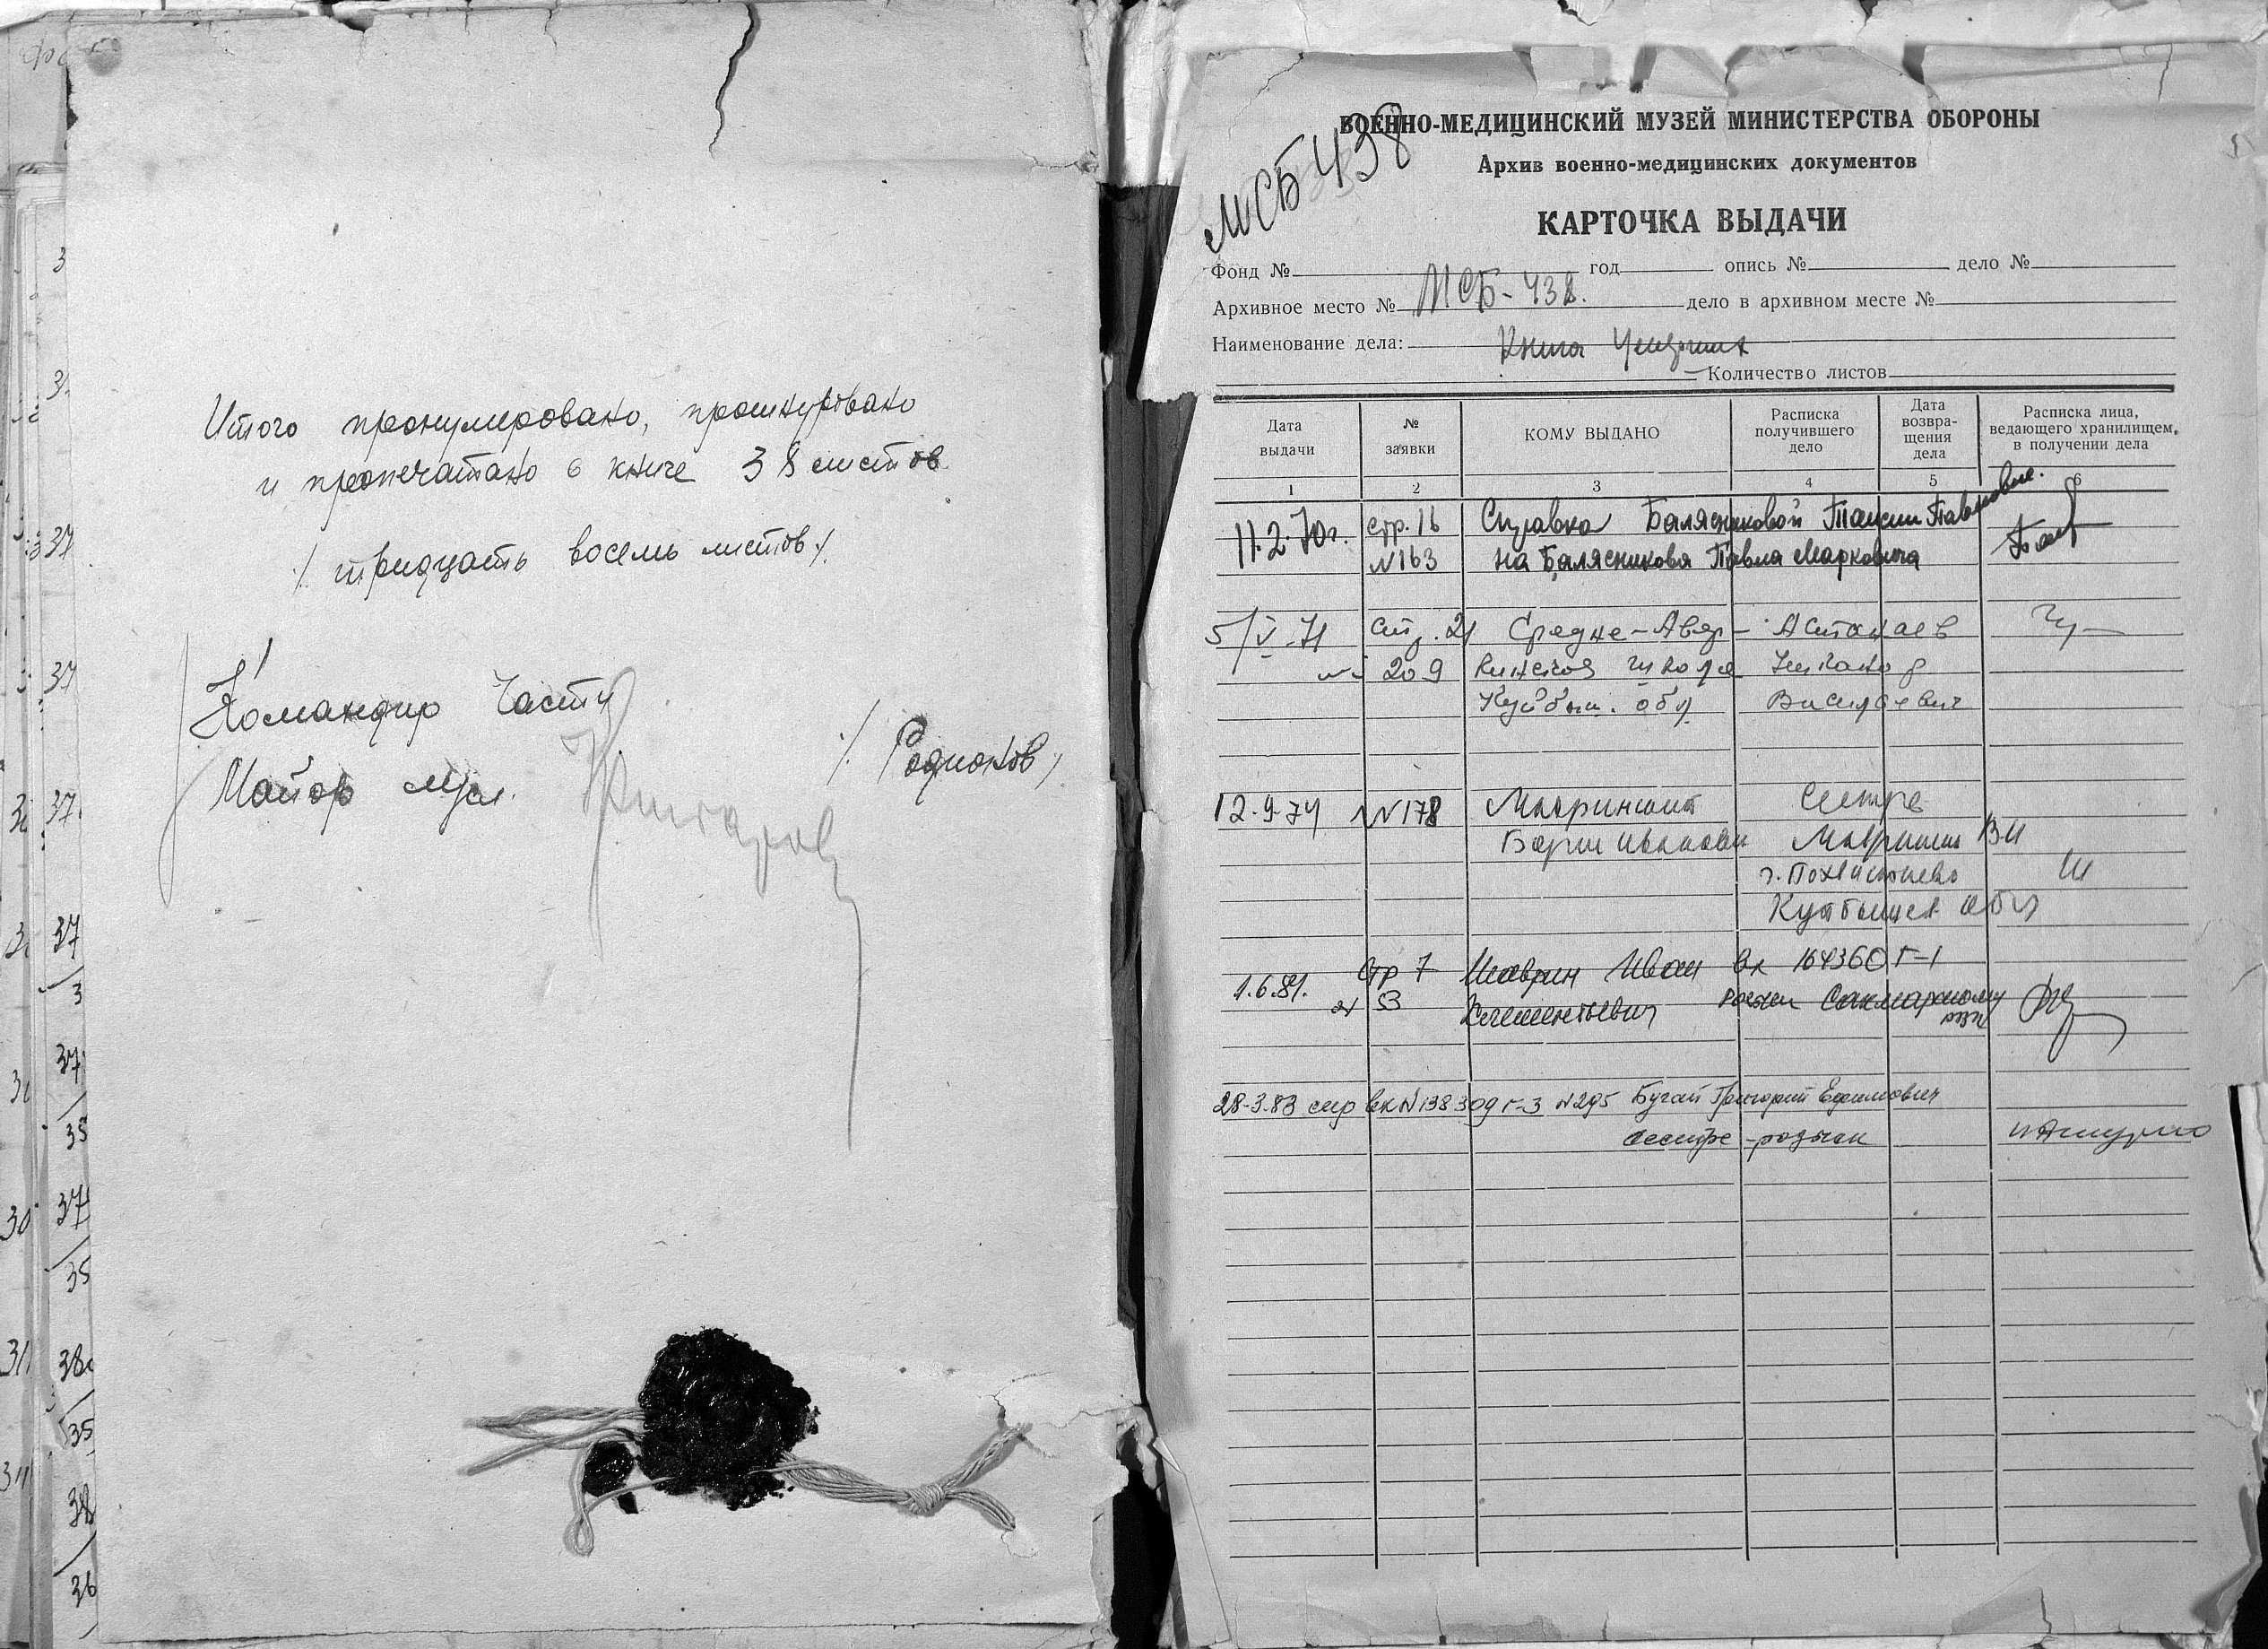 Итого пронумеровано, прошнуровано
и пропечатано в книге 38 листов
/ тридцать восемь листов /.
Командир части
Майор м/сл. / Родионов /
3
37
37
37
37
3
37
35
37
35
38
35
38
36
МСБ 438
ВОЕННО-МЕДИЦИНСКИЙ МУЗЕЙ МИНИСТЕРСТВА ОБОРОНЫ
Архив военно-медицинских документов
КАРТОЧКА ВЫДАЧИ
Фонд № год опись № дело №
Архивное место № МСБ-438. дело в архивном месте №
Наименование дела: Книга умерших
Количество листов
Дата выдачи
№ заявки
КОМУ ВЫДАНО
Расписка получившего дело
Дата возвра-щения дела
Расписка лица, ведающего хранилищем, в получении дела
1 2 3 4 5 6
11.2.70г. стр. 16 Справка Балясниковой Таисии Павловне.
№163 на Балясникова Павла Марковича
5/V-71 стр. 21 Средне-Авер- Астанаев
№ 209 кинская школа
Куйбыш. обл. Васильевич
12-9-74 №178 сестре
Борис Иванович ВИ
г. Похвистнево
Куйбышев обл
1.6.81. стр 7 Шаврин Иван вк 164360 Г-1
№ 53 Клементьевич Сакмарскому
28-3.83 стр вк №138309 Г-3 №295 Бугай Григорий Ефимович
сестре -розыск